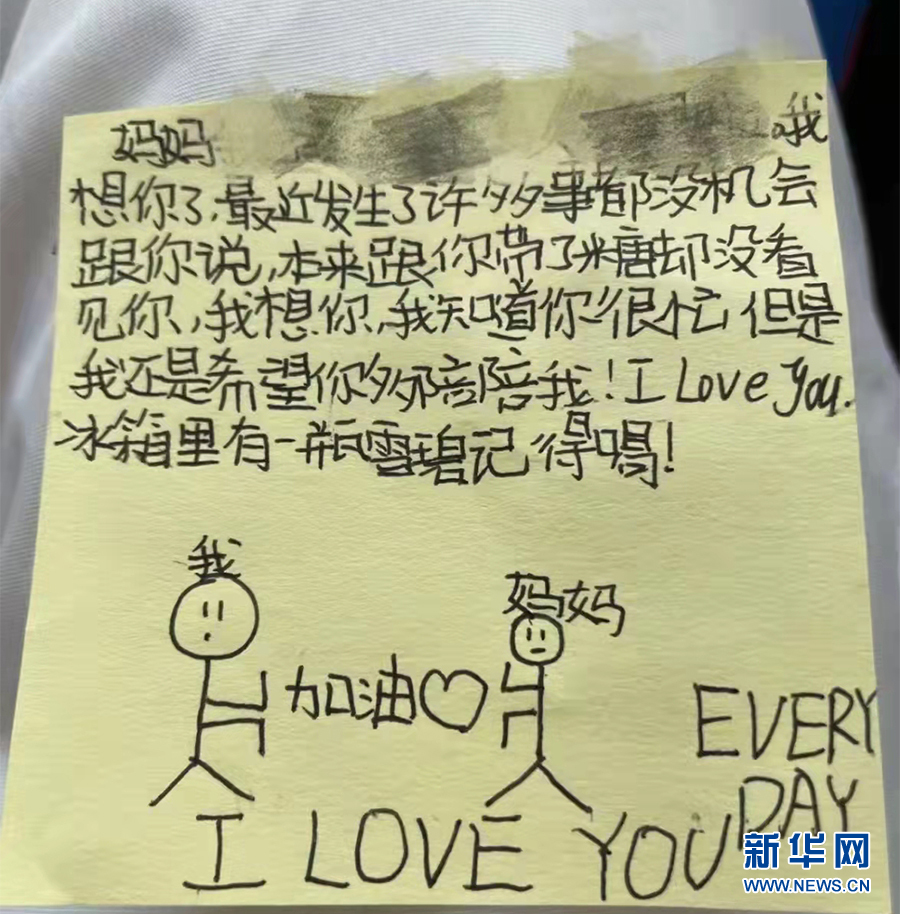 妈妈 我
想你了,最近发生了许多事都没机会
跟你说,本来跟你带了米糖却没看
见你,我想你,我知道你很忙但是
我还是希望你多陪陪我!I Love You.
冰箱里有一瓶雪碧记得喝!
我
妈妈
加油♡
EVERY
DAY
I LOVE YOU
新华网
WWW.NEWS.CN